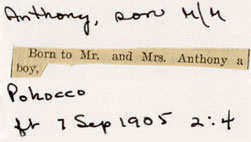 Anthony, son M/M
Born to Mr. and Mrs. Anthony a
boy,
Pokocco
ft 7 Sep 1905 2:4